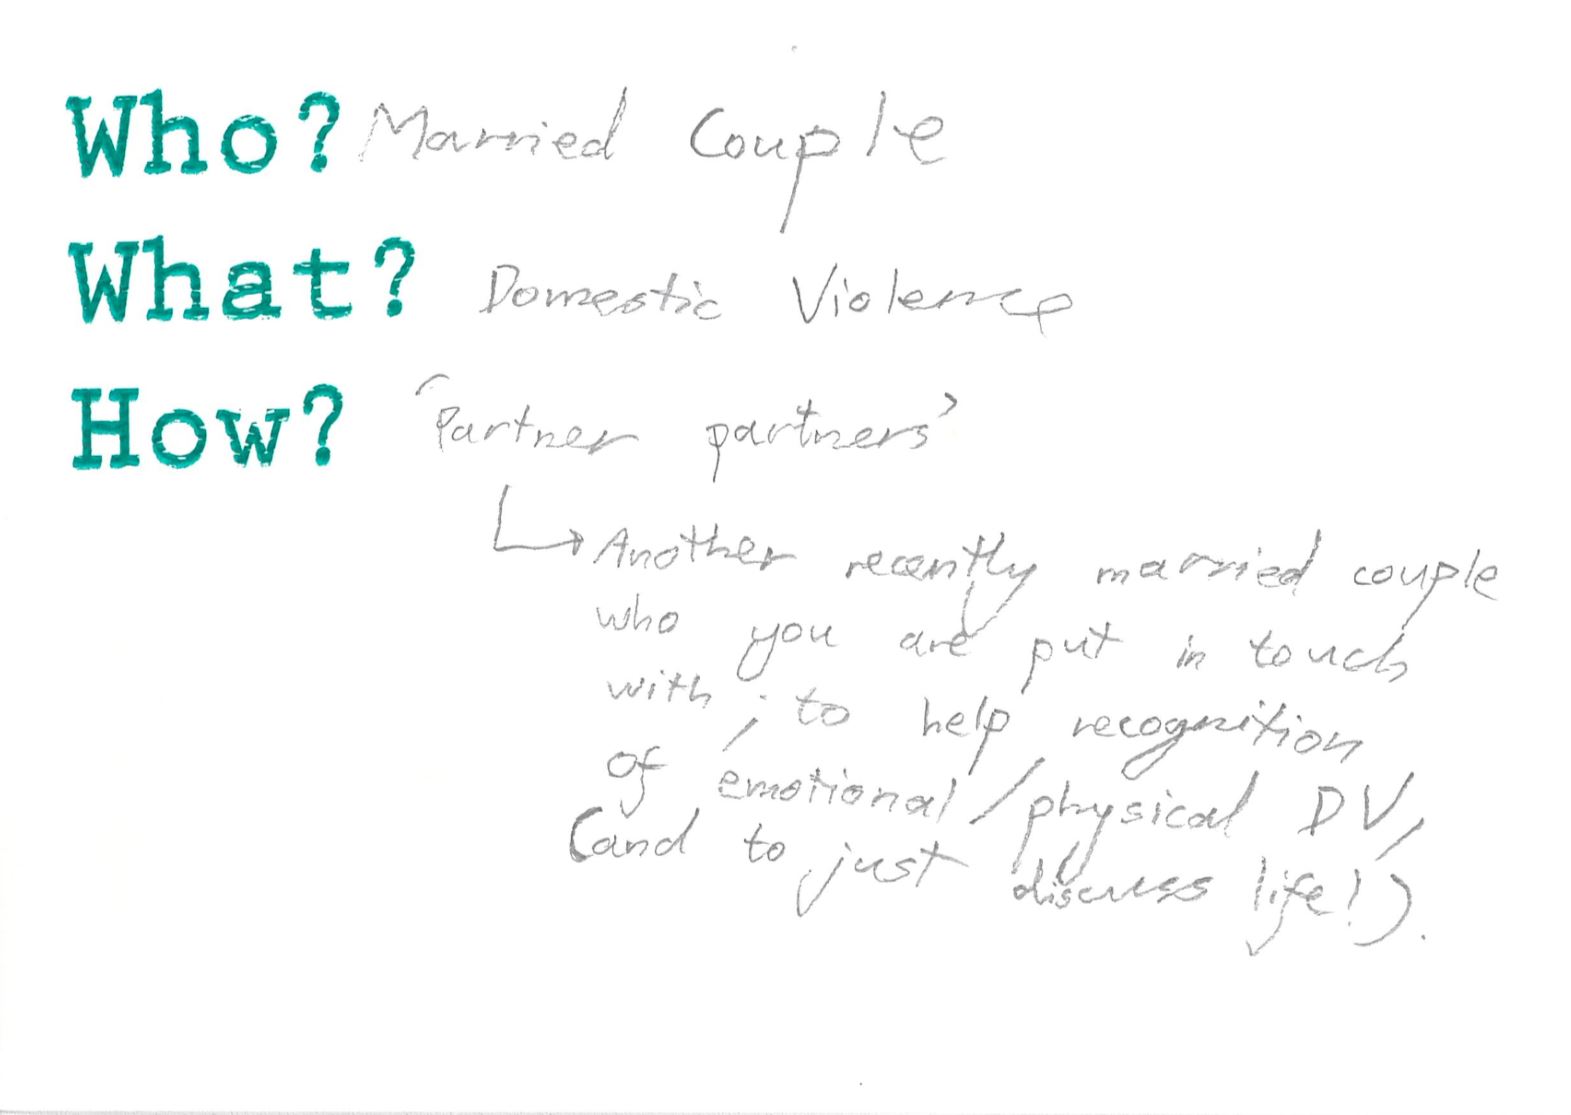 Who? Married Couple
What? Domestic Violence
How? 'Partner partners'
↳ Another recently married couple
who you are put in touch
with ; to help recognition
of emotional/physical DV,
(and to just discuss life!).